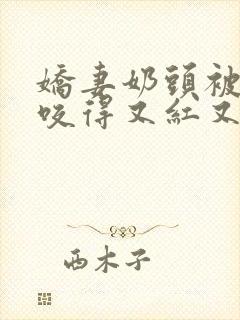 嬌妻奶頭被
咬得又紅又
西木子